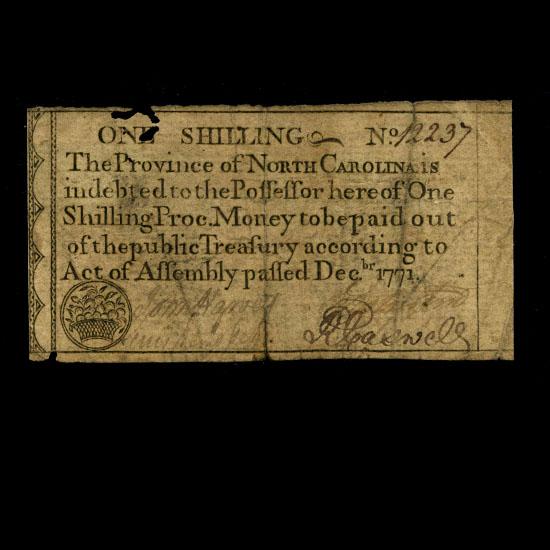 ONE SHILLING No. 12237
The Province of NORTH CAROLINA is
indebted to the Poſſeſſor hereof One
Shilling Proc. Money to be paid out
of the public Treaſury according to
Act of Aſſembly paſſed Dec.br 1771.
R Caswell